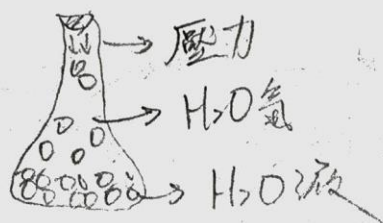 壓力
H₂O氣
H₂O液